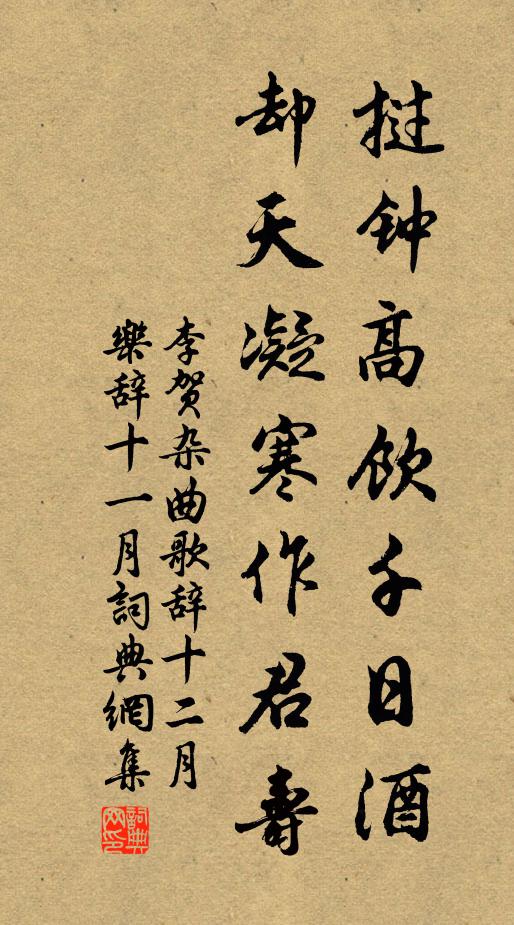 挝钟高饮千日酒
却天凝寒作君寿
李贺杂曲歌辞十二月
樂辞十一月詞典網集
詞典网印